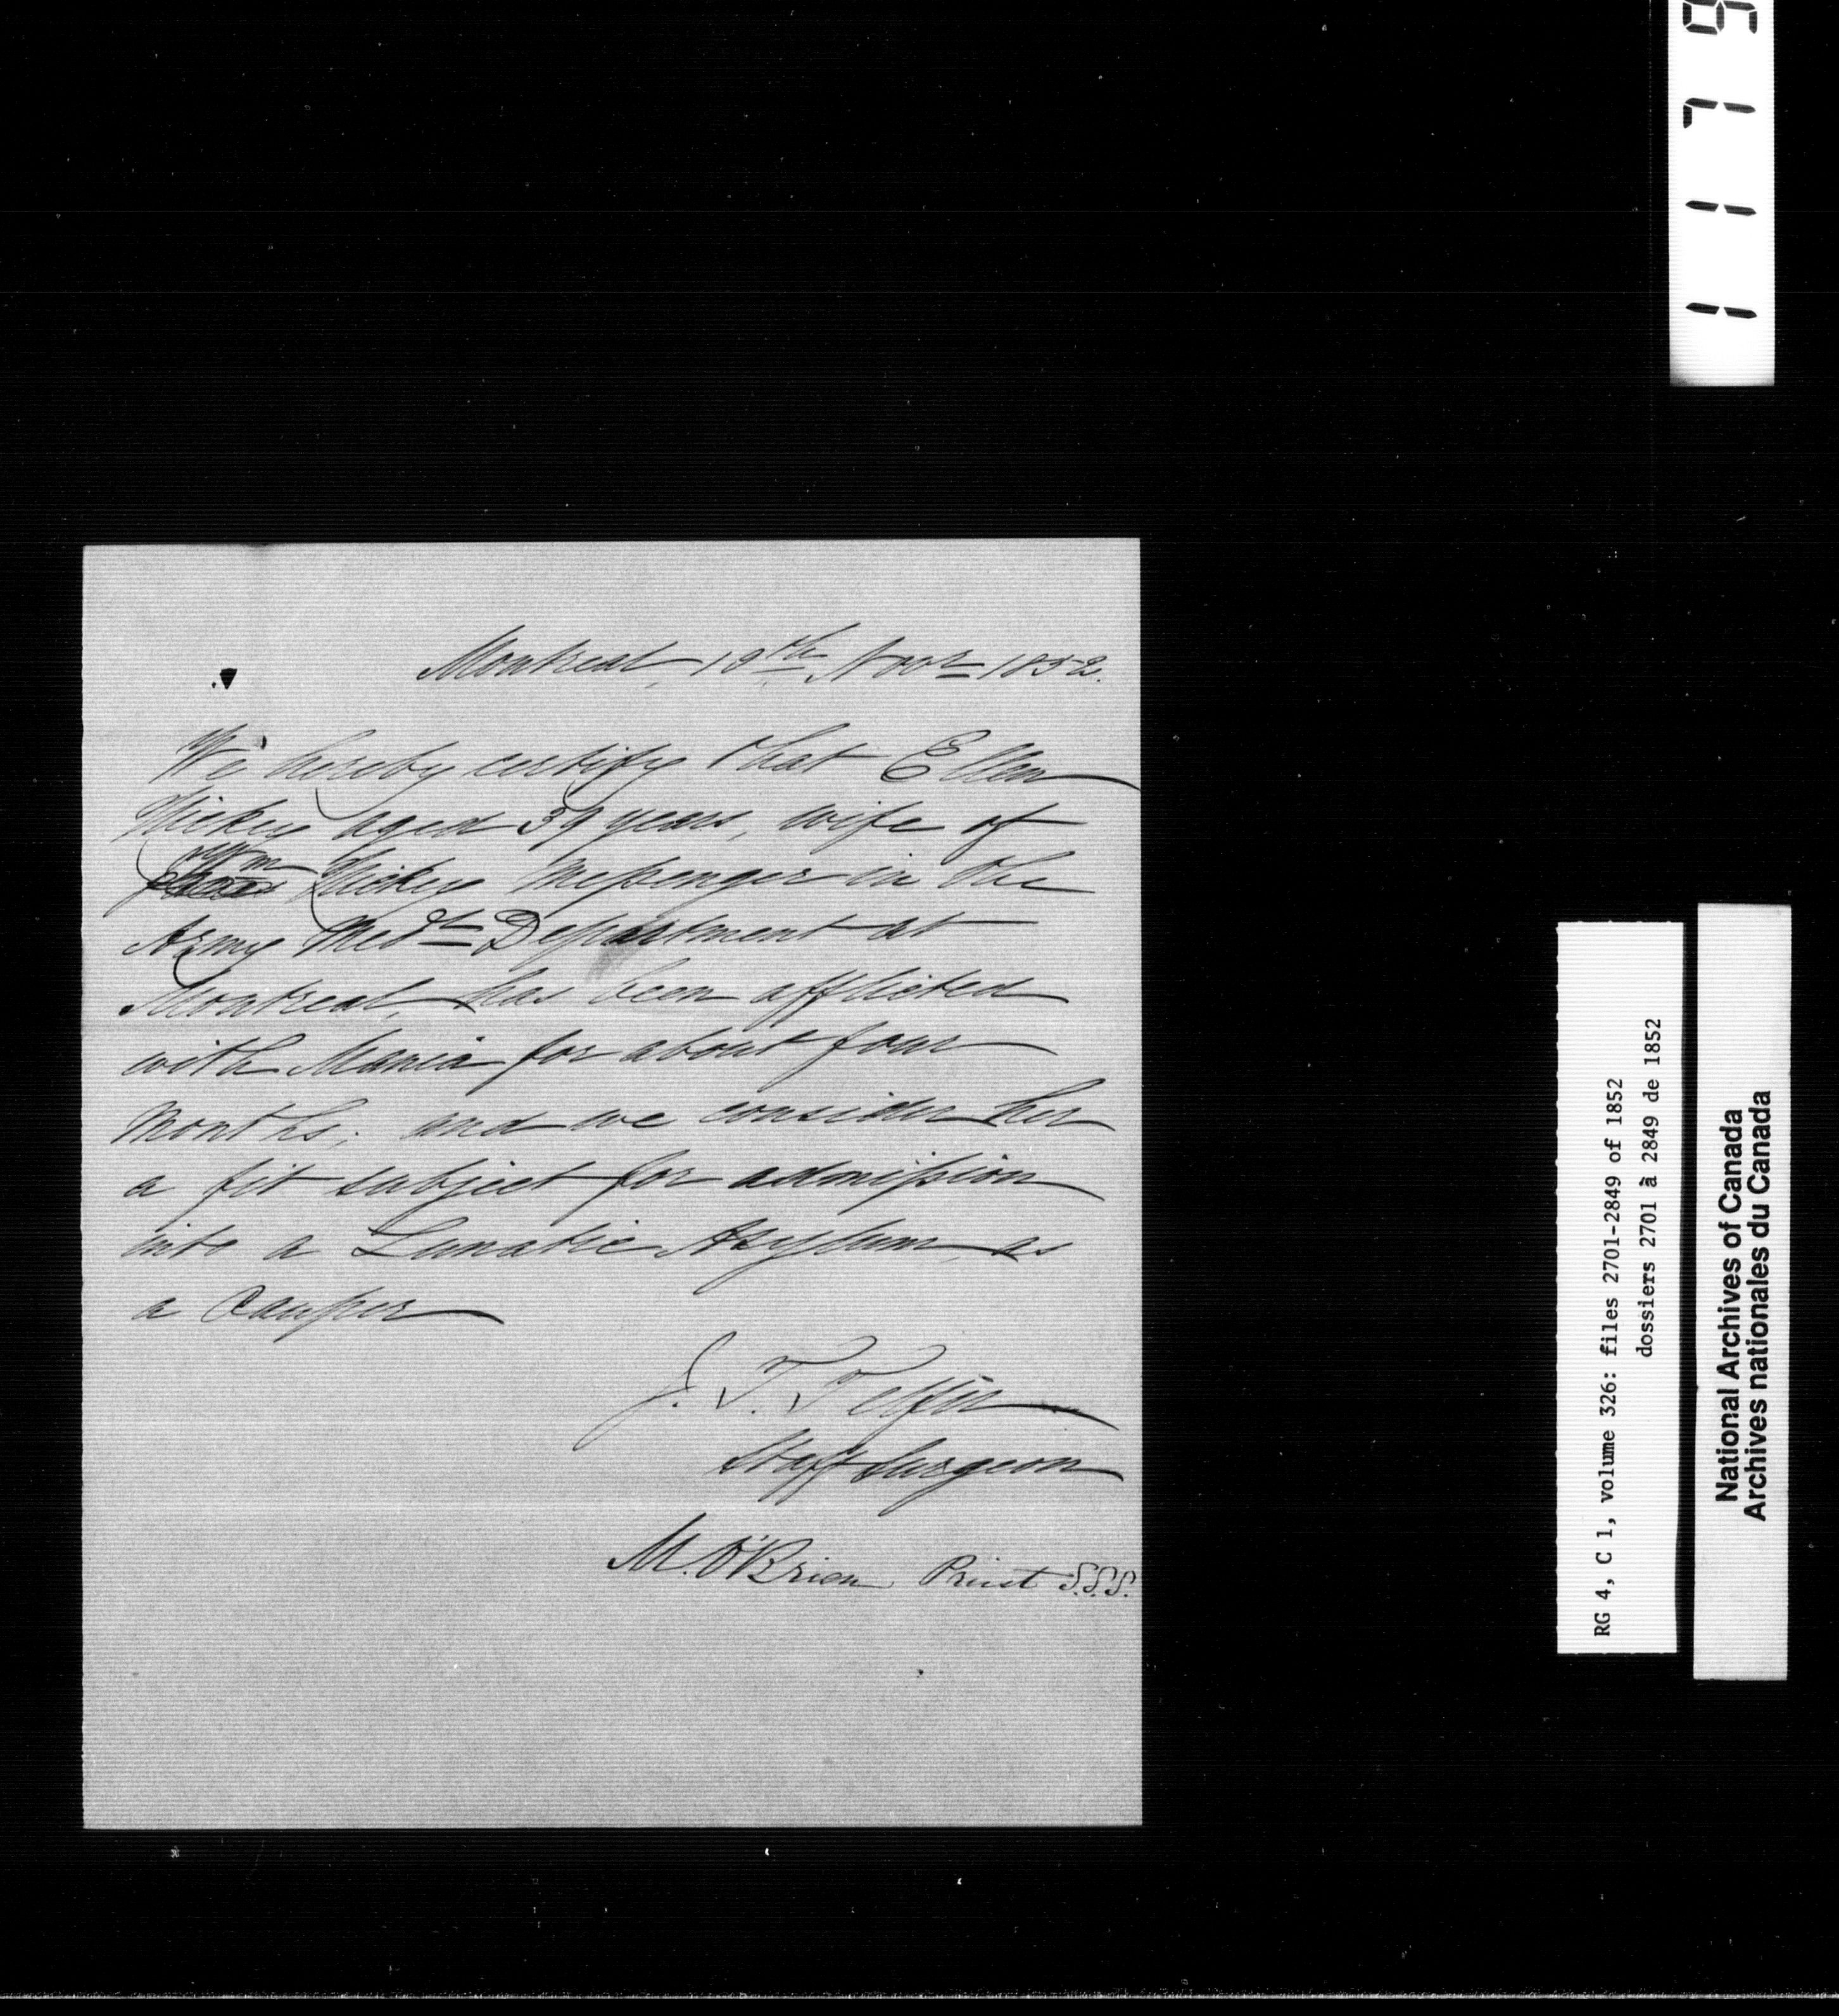 Montreal, 19th Novr 1852.
We hereby certify that Ellen
Hickey aged 39 years, wife of
Wm Hickey Messenger in the
Army Medl Department at
Montreal, has been afflicted
with Mania for about four
months; and we consider her
a fit subject for admission
into a Lunatic Asylum, as
a Pauper
J. T. Telfer
Staff Surgeon
M. O'Brien Priest S.S.S.
RG 4, C 1, volume 326: files 2701-2849 of 1852
dossiers 2701 à 2849 de 1852
National Archives of Canada
Archives nationales du Canada